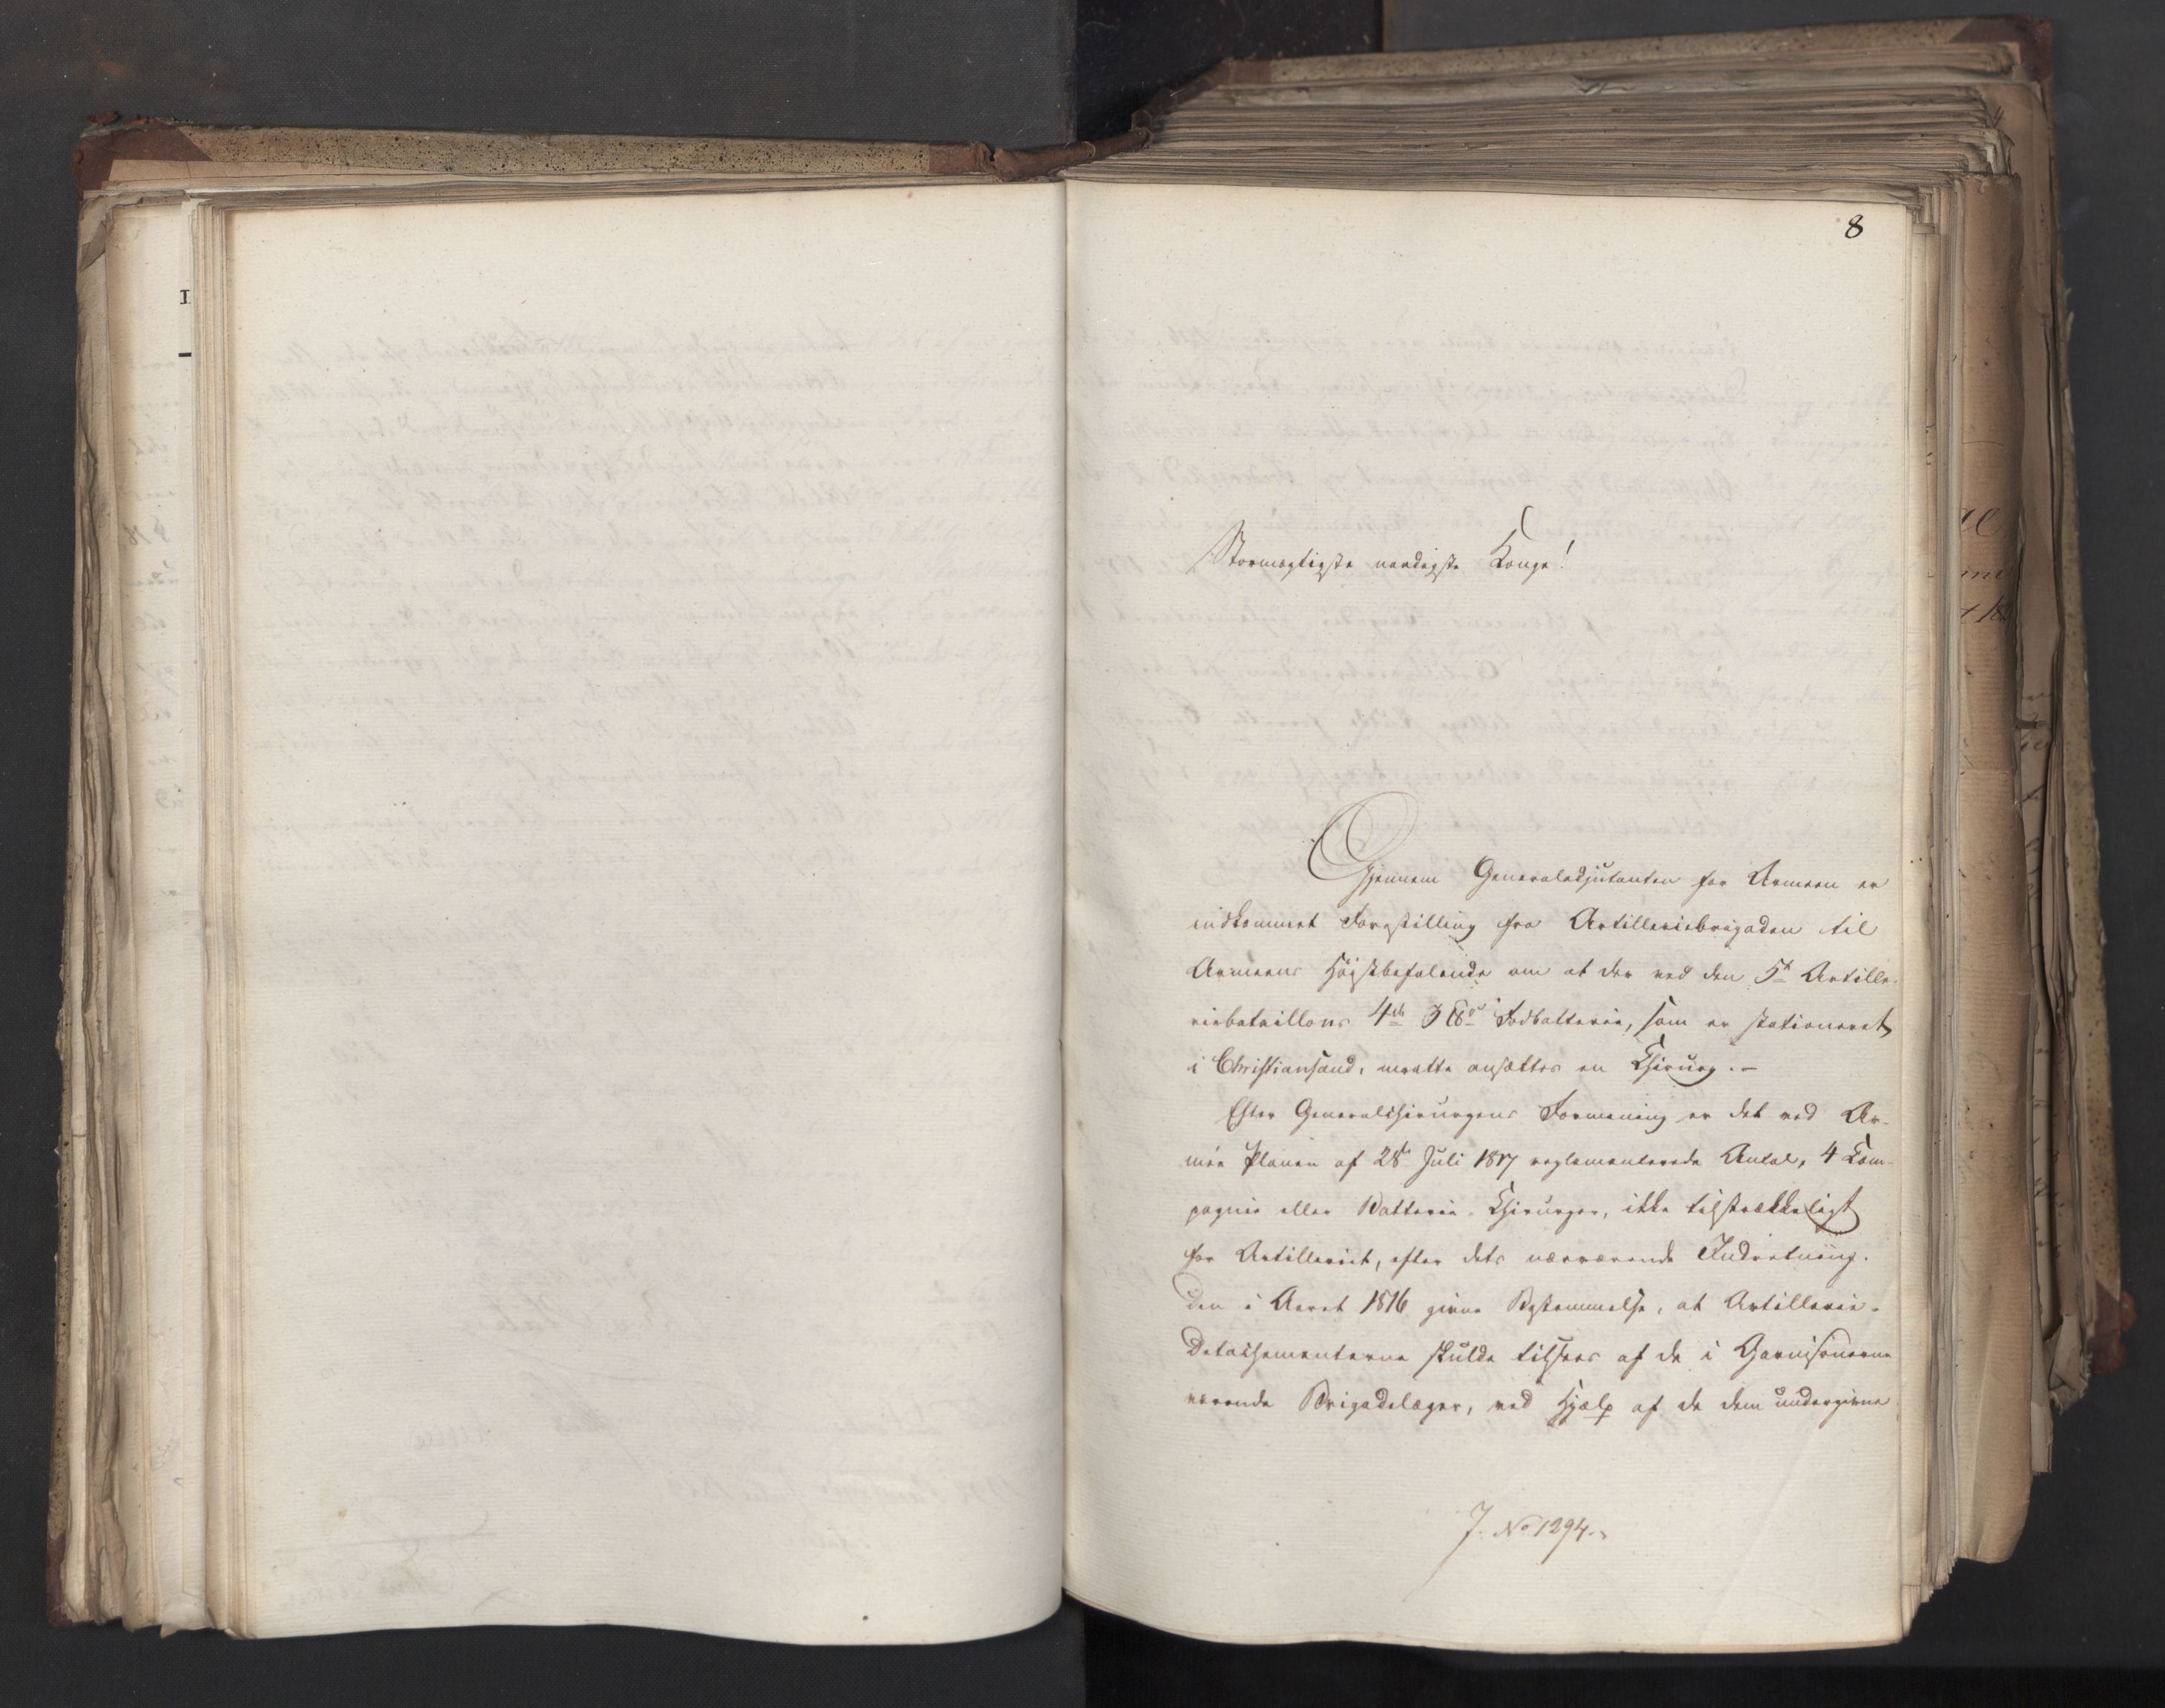 8
Stormægtigste naadigste Konge!
Gjennem Generaladjutanten for Armeen er
indkommet Forestilling fra Artilleriebrigaden til
Armeens Høistbefalende om at der ved den 5te Artille-
riebataillons 4de Fodbatterie, som er stationeret
i Christiansand, maatte ansættes en Chirurg.-
Efter Generalchirurgens Formening er det ved Ar-
mee Planen af 28de Juli 1817 reglementerede Antal, 4 Com-
pagnie eller Batterie-Chirurger, ikke tilstrækkeligt
for Artilleriet, efter dets nærværende Indretning.
Den i Aaret 1816 givne Bestemmelse, at Artillerie-
Detachementerne skulde tilsees af de i Garnisonerne
værende Brigadelæger, ved Hjælp af de dem undergivne
J. No 1294.